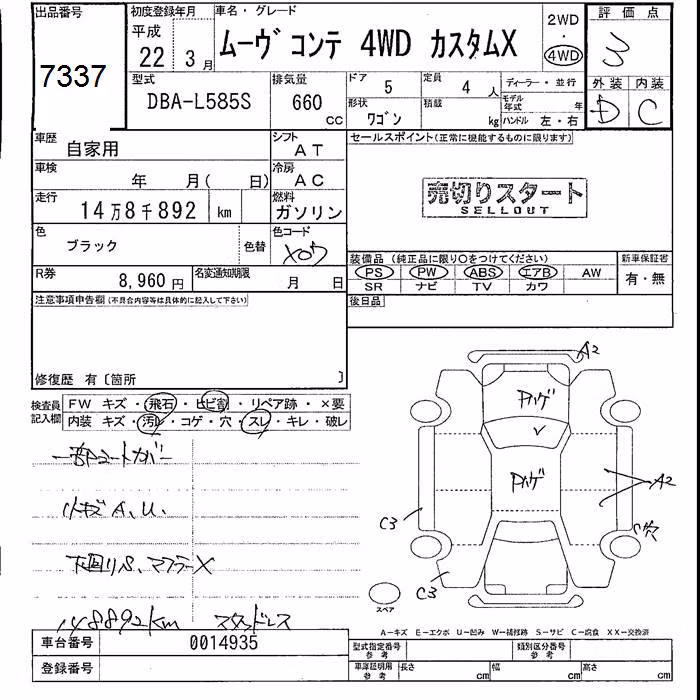 出品番号
7337
初度登録年月
平成
22 3月
車名・グレード
ムーヴ コンテ 4WD カスタムX
2WD
・
4WD
評価点
3
外装 内装
D C
型式
DBA-L585S
排気量
660 cc
ドア
5
定員
4 人
形状
ワゴン
積載
kg
ディーラー・並行
モデル年式 年
ハンドル 左・右
車歴
自家用
シフト
AT
車検
年 月( 日)
冷房
AC
走行
14万8千892 km
燃料
ガソリン
色
ブラック
色替
色コード
X07
R券
8,960 円
名変通知期限
月 日
セールスポイント(正常に機能するものに限ります)
売切りスタート
SELLOUT
装備品(純正品に限り○をつけてください)
PS PW ABS エアB AW
SR ナビ TV カワ
新車保証書
有・無
後日品
注意事項申告欄(不具合内容等は具体的に記入して下さい)
修復歴 有〔箇所 〕
検査員記入欄
FW キズ・飛石・ヒビ割・リペア跡・×要
内装 キズ・汚れ・コゲ・穴・スレ・キレ・破レ
一部コートカバー
小キズA、U、
下廻りS、マフラーX
148892km スタッドレス
A2
ハゲ
ハゲ
A2
C3
C3
穴
スペア
A-キズ E-エクボ U-凹み W-補修跡 S-サビ C-腐食 XX-交換済
車台番号
0014935
登録番号
型式指定番号
参考
類別区分番号
参考
車庫証明用
参考
長さ cm
幅 cm
高さ cm